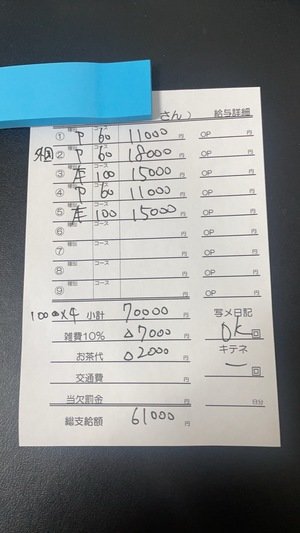 さん) 給与詳細
① P 60 11000 円 OP 円
外国 ② P 60 18000 円 OP 円
③ 100 15000 円 OP 円
④ P 60 11000 円 OP 円
⑤ 100 15000 円 OP 円
⑥ 種別 コース 円 OP 円
⑦ 種別 コース 円 OP 円
⑧ 種別 コース 円 OP 円
⑨ 種別 コース 円 OP 円
小計 70,000 円 写メ日記
雑費10% △7000 円 OK 回
お茶代 △2000 円 キテネ
交通費 円 ー 回
当欠罰金 円 日分
総支給額 61000 円